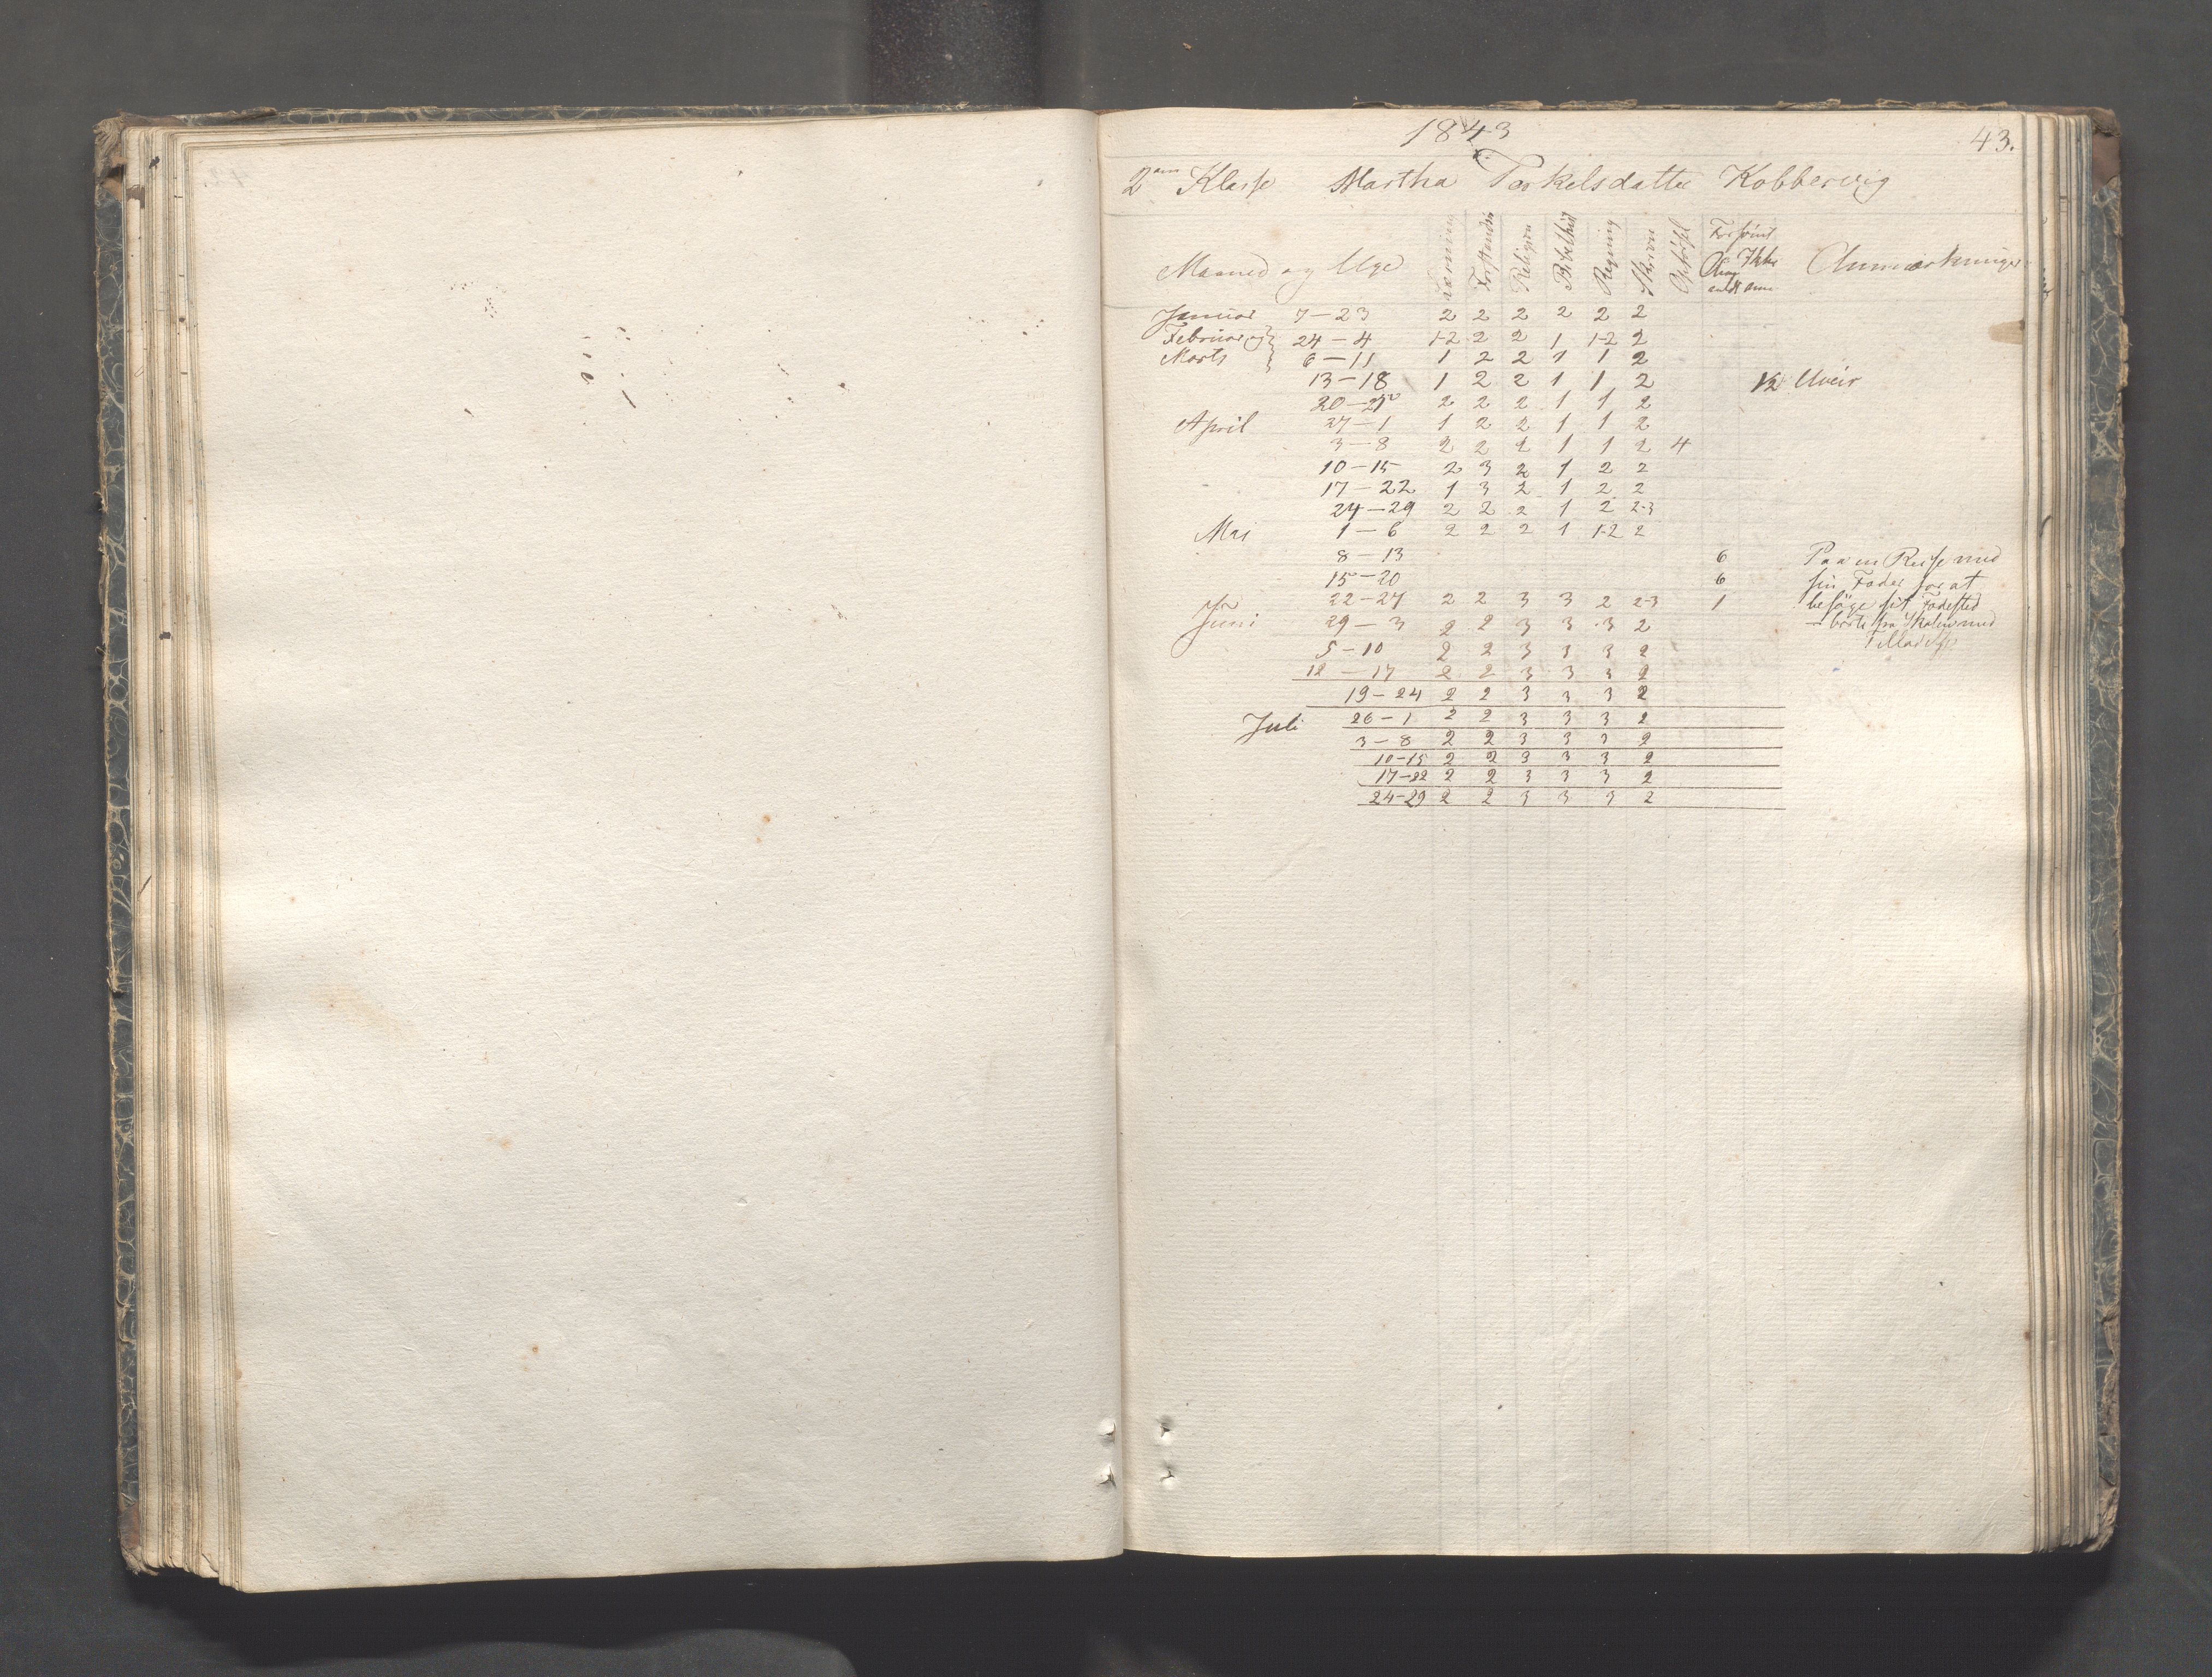 1843
43.
2den Klasse Martha Torkelsdatter Kobbervig
Maaned og Uge Læsning Forstandsø Religion Bibelhist Regning Skriven Opførsel Forsømt Anmærkninger
Januar 7–23 2 2 2 2 2 2
Februar og 24–4 1-2 2 2 1 1-2 2
Marts 6–11 1 2 2 1 1 2
13–18 1 2 2 1 1 2 1/2 Uveir
20–25 2 2 2 1 1 2
April 27–1 1 2 2 1 1 2
3–8 2 2 2 1 1 2 4
10–15 2 3 2 1 2 2
17–22 1 3 2 1 2 2
24–29 2 2 2 1 2 2-3
Mai 1–6 2 2 2 1 1-2 2
8–13 6 Paa en Reise med
15–20 6 sin Fader for at
22–27 2 2 3 3 2 2-3 1 besøge sit Fødested
Juni 29–3 2 2 3 3 3 2 – borte fra Skolen med
5–10 2 2 3 3 3 2 Tilladelse
12–17 2 2 3 3 3 2
19–24 2 2 3 3 3 2
Juli 26–1 2 2 3 3 3 2
3–8 2 2 3 3 3 2
10–15 2 2 3 3 3 2
17–22 2 2 3 3 3 2
24–29 2 2 3 3 3 2